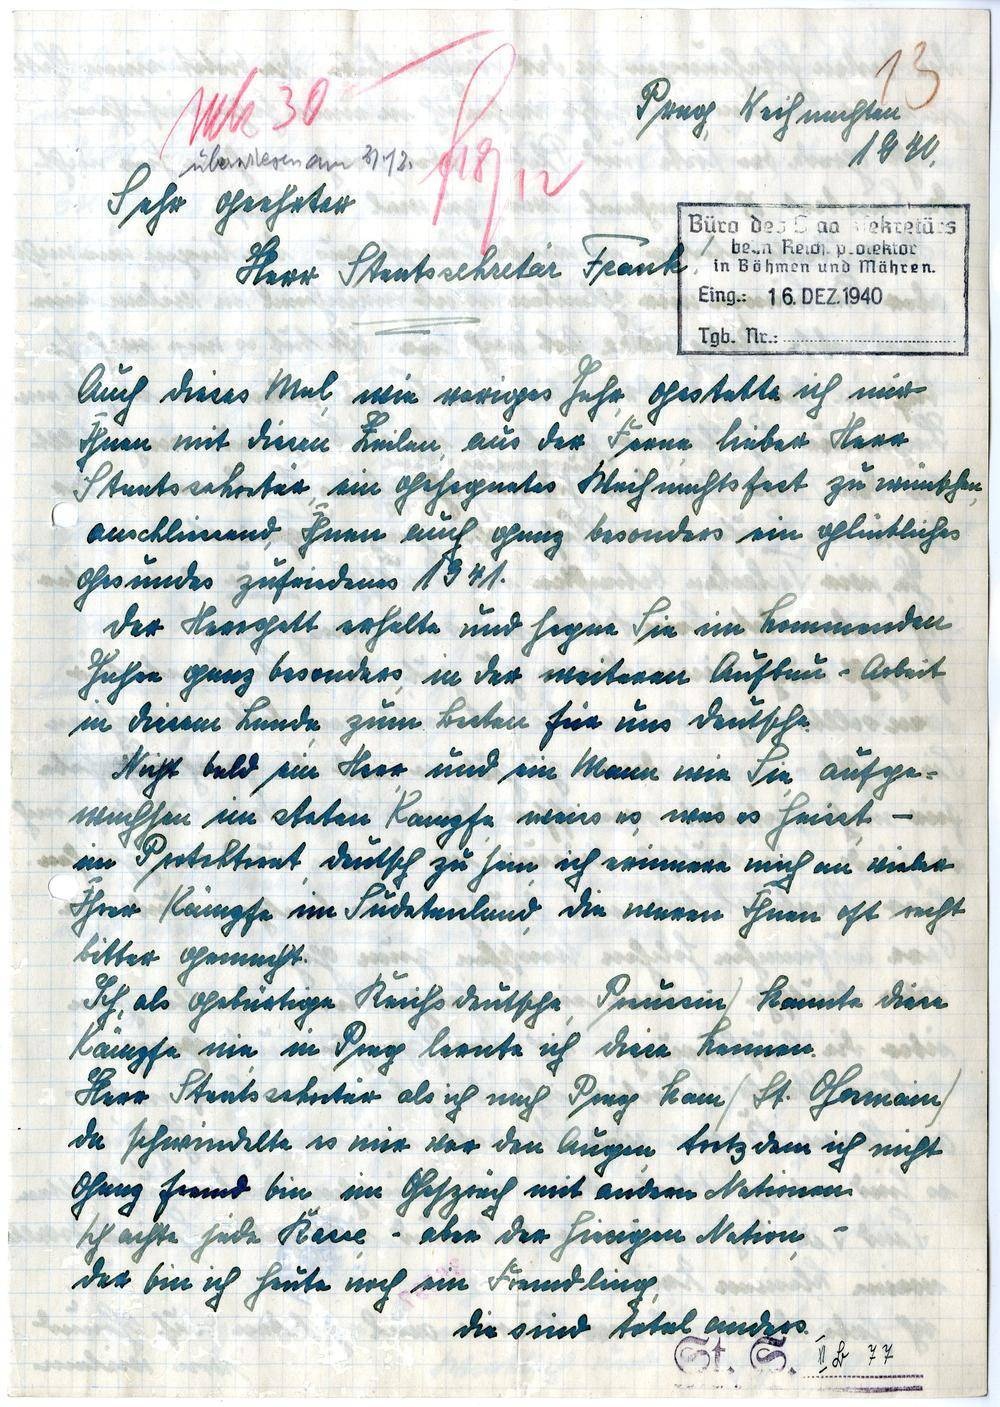 13
Mk 30
überwiesen am 31/12.
18/12
Prag, Weihnachten
1940.
Sehr geehrter
Herr Staatssekretär Frank!
Büro des Staatssekretärs
beim Reichsprotektor
in Böhmen und Mähren.
Eing.: 16. DEZ. 1940
Tgb. Nr.:
Auch dieses Mal, wie voriges Jahr, gestatte ich mir
Ihnen mit diesen Zeilen, aus der Ferne lieber Herr
Staatssekretär, ein gesegnetes Weihnachtsfest zu wünschen,
anschliessend, Ihnen auch ganz besonders ein glückliches
gesundes zufriedenes 1941.
Der Herrgott erhalte und segne Sie im kommenden
Jahre ganz besonders, in der weiteren Aufbau-Arbeit
in diesem Lande, zum besten für uns Deutsche.
Nicht bald ein Herr, und ein Mann wie Sie, aufge-
wachsen im steten Kampfe, weiss es, was es heisst –
im Protektorat, deutsch zu sein, ich erinnere mich an vieler
Ihrer Kämpfe im Sudetenland, die waren Ihnen oft recht
bitter gemacht.
Ich, als gebürtige Reichsdeutsche, Preussin) kannte diese
Kämpfe nie, in Prag lernte ich diese kennen.
Herr Staatssekretär als ich nach Prag kam (St. Germain)
da schwindelte es mir vor den Augen, trotzdem ich nicht
ganz fremd bin im Gespräch mit andern Nationen.
Ich achte jede Rasse - aber der hiesigen Nation, –
der bin ich heute noch ein Fremdling,
die sind total anders.
St. S. II b 77